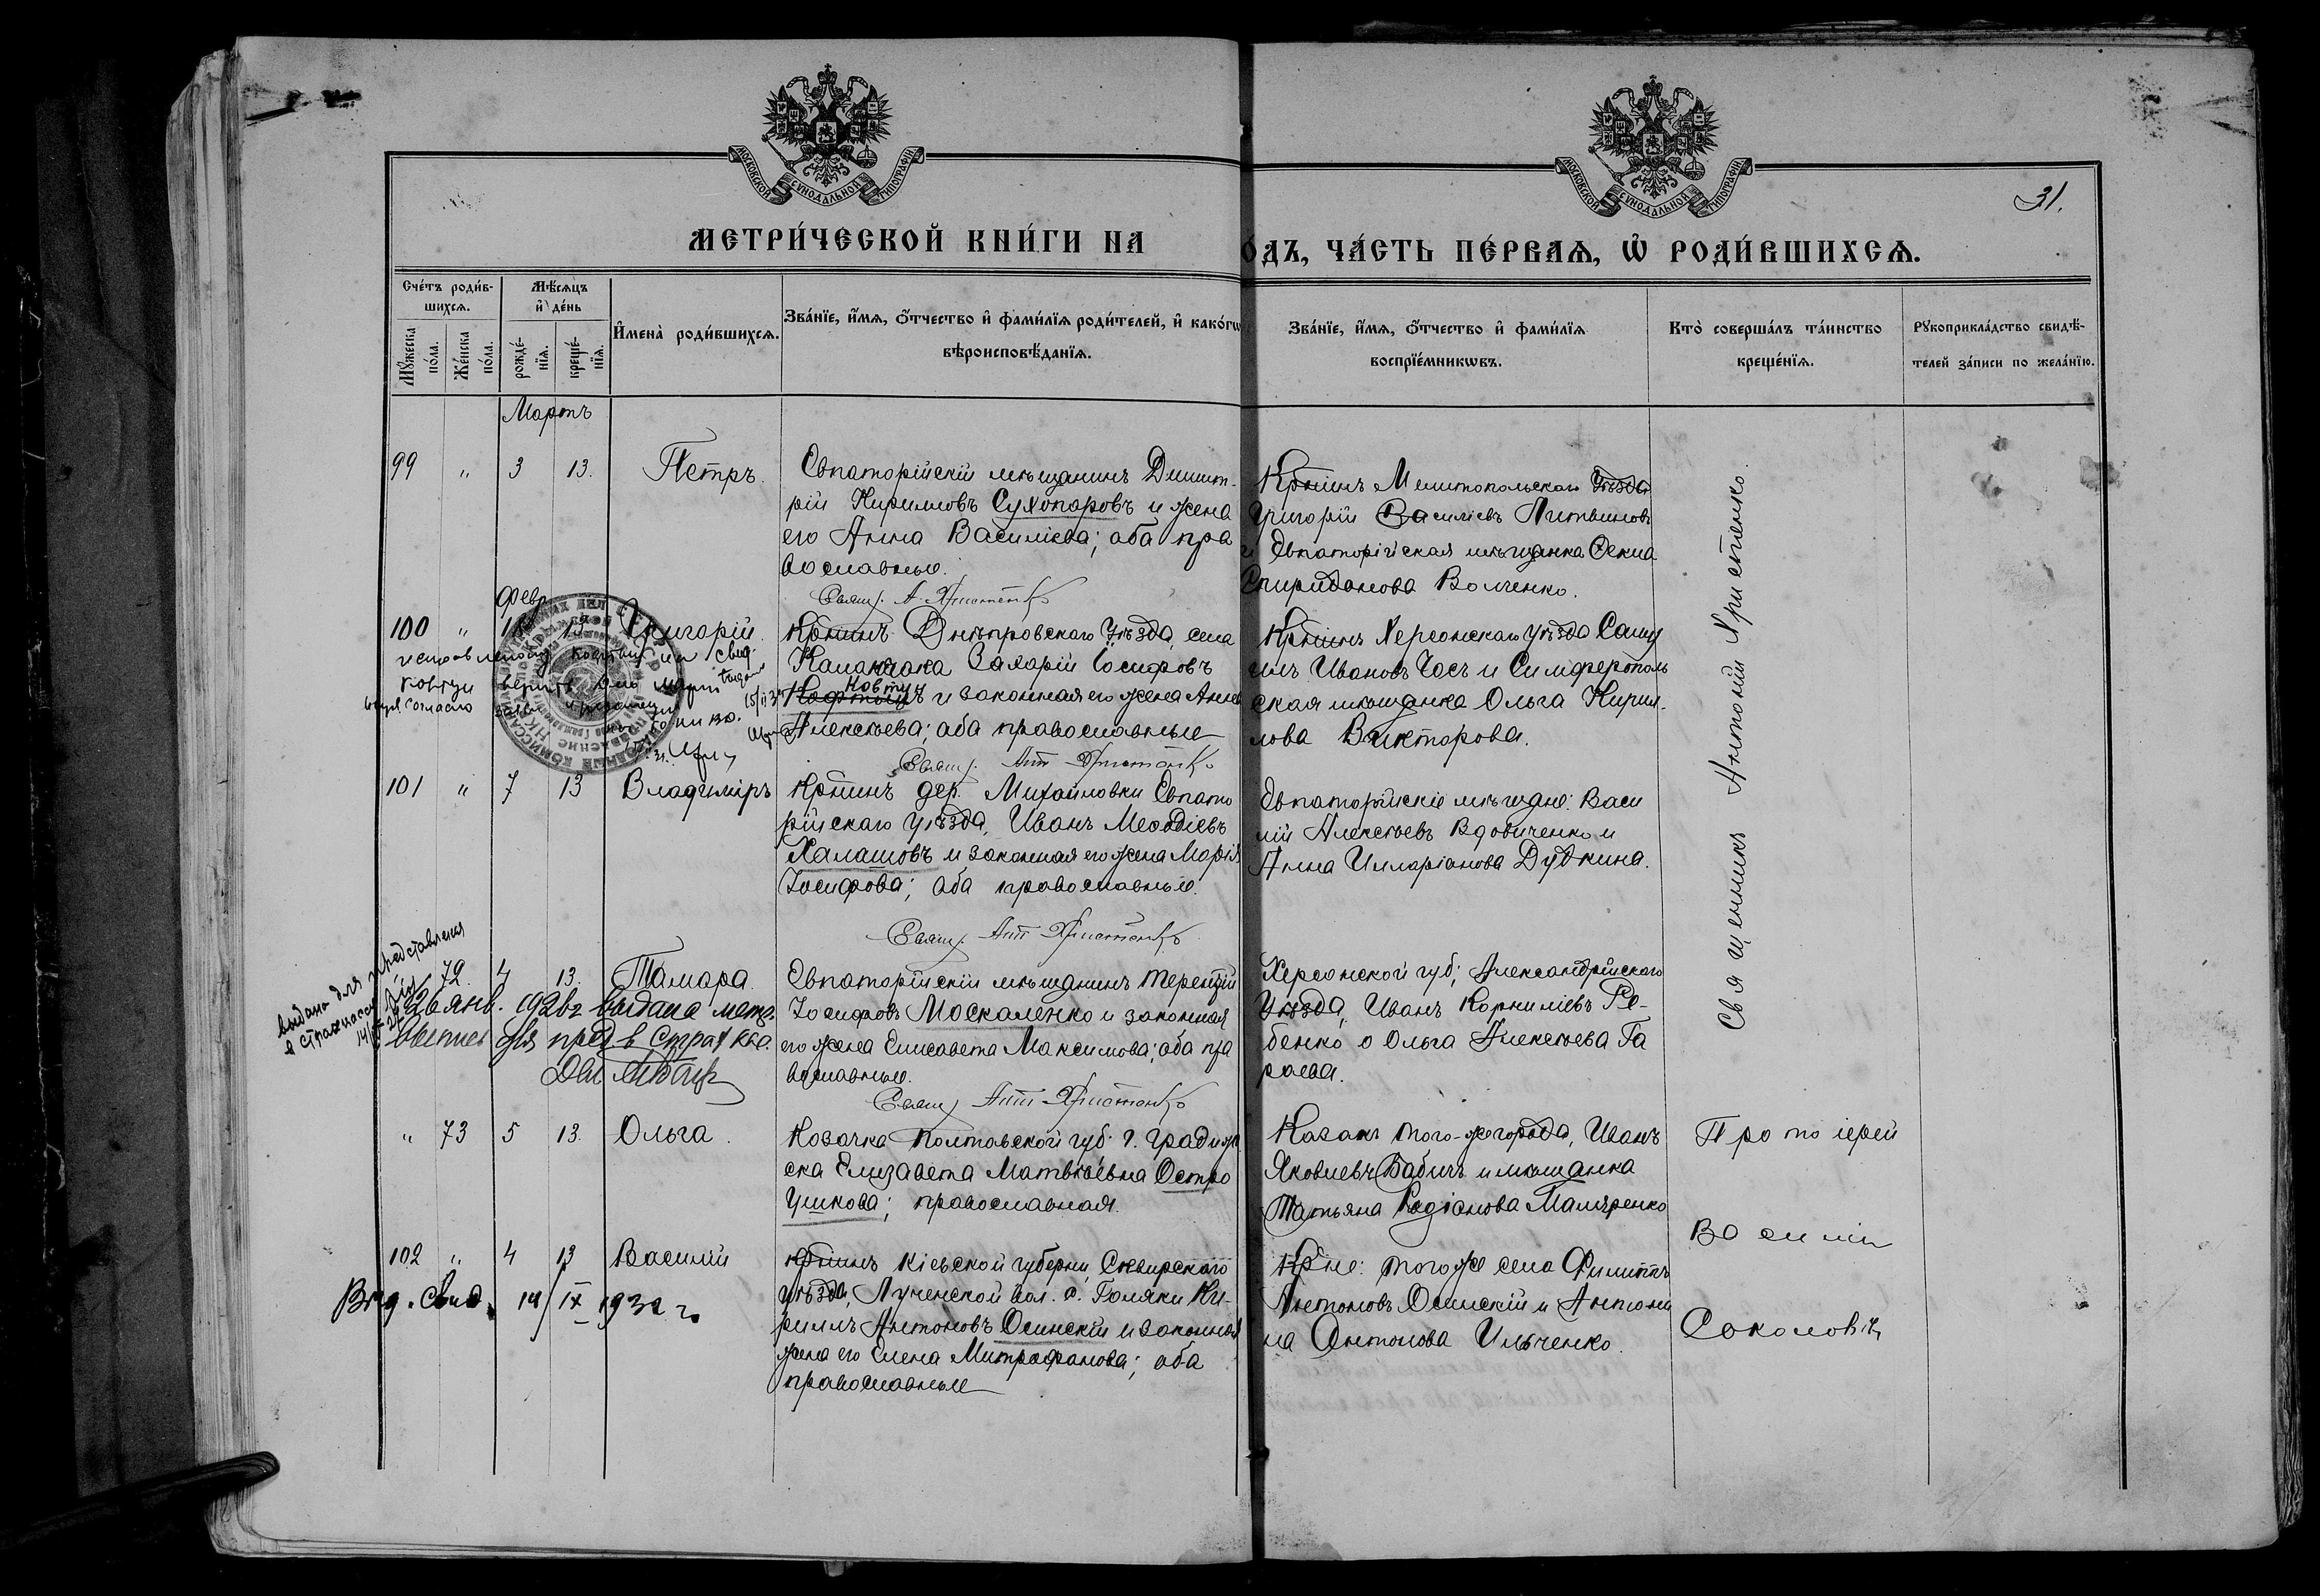 МОСКОВСКОЙ СУНОДАЛЬНОЙ ТИПОГРАФІИ
МОСКОВСКОЙ СУНОДАЛЬНОЙ ТИПОГРАФІИ
31.
МЕТРИ́ЧЕСКОЙ КНИ́ГИ НА
О́ДЪ, ЧА́СТЬ ПЕ́РВАѦ, Ѡ҆ РОДИ́ВШИХСѦ.
Сче́тъ роди́в-
шихсѧ.
Мѣ́сѧцъ
и҆ де́нь
Мꙋ́жеска по́ла.
Же́нска по́ла.
рожде́-нїѧ.
креще́-нїѧ.
И҆мена̀ роди́вшихсѧ.
Зва́нїе, и҆́мѧ, ѻ҆́тчество и҆ фами́лїѧ роди́телей, и҆ како́гѡ
вѣроисповѣ́данїѧ.
Зва́нїе, и҆́мѧ, ѻ҆́тчество и҆ фами́лїѧ
воспрїе́мникѡвъ.
Кто̀ соверша́лъ та́инство
креще́нїѧ.
Рꙋкоприкла́дство свидѣ́-
телей за́писи по жела́нїю.
Мартъ
99 " 3 13. Петръ.
Евпаторійскій мѣщанинъ Димит-
рій Кирилловъ Сухопаровъ и жена
его Анна Василіева; оба пра
вославные.
Свящ. А. Христенко
Крт̃инъ Мелитопольскаго уѣзда
Григорій Василіевъ Литвиновъ
и Евпаторійская мѣщанка Фекла
Спиридонова Волченко.
Февр
100 " 13 Григорій.
Крт̃инъ Днѣпровскаго уѣзда, села
Каланчака Захарій Іосифовъ
Ковтун
и законная его жена Анна
Алексѣева; оба православные
Свящ. Ант Христенко
Крт̃инъ Херсонскаго уѣзда Саму
илъ Ивановъ Часъ и Симферополь
ская мѣщанка Ольга Кирил-
лова Викторова.
101 " 7 13 Владиміръ
Крт̃инъ дер. Михайловки Евпато
рійскаго уѣзда, Иванъ Меѳодіевъ
Халашовъ и законная его жена Марія
Іосифова; оба православные.
Свящ. Ант Христенко
Евпаторійскіе мѣщане: Васи
лій Алексѣевъ Вдовиченко и
Анна Илларіонова Дудкина.
выдано для представления
в страхкассу
72. 4 13. Тамара.
26 янв. 192 г выдана метр.
для пред в Страх кас.
Евпаторійскій мѣщанинъ Терентій
Іосифовъ Москаленко и законная
его жена Елисавета Максимова; оба пра
вославные.
Свящ Ант Христенко
Херсонской губ; Александрійскаго
уѣзда, Иванъ Корниліевъ Ре-
бенко и Ольга Алексѣева Га
раева.
" 73 5 13. Ольга.
Козачка Полтавской губ. г. Градиж
ска Елизавета Матвѣевна Остро
ушкова; православная.
Казакъ того-же города, Иванъ
Яковлевъ Бабичъ и мѣщанка
Татьяна Родіонова Маляренко
102 " 4 13 Василій
Выд. Свид. 14/IX 1932 г
Крт̃инъ Кіевской губерніи, Сквирскаго
уѣзда, Лученской вол. с. Голяки Ки-
риллъ Антоновъ Осинскій и законная
жена его Елена Митрофанова; оба
православные
Крт̃не: того же села Филиппъ
Антоновъ Осинскій и Антони
на Антонова Ильченко.
Священникъ Антоній Христенко.
Протоіерей
Василій
Соколовъ